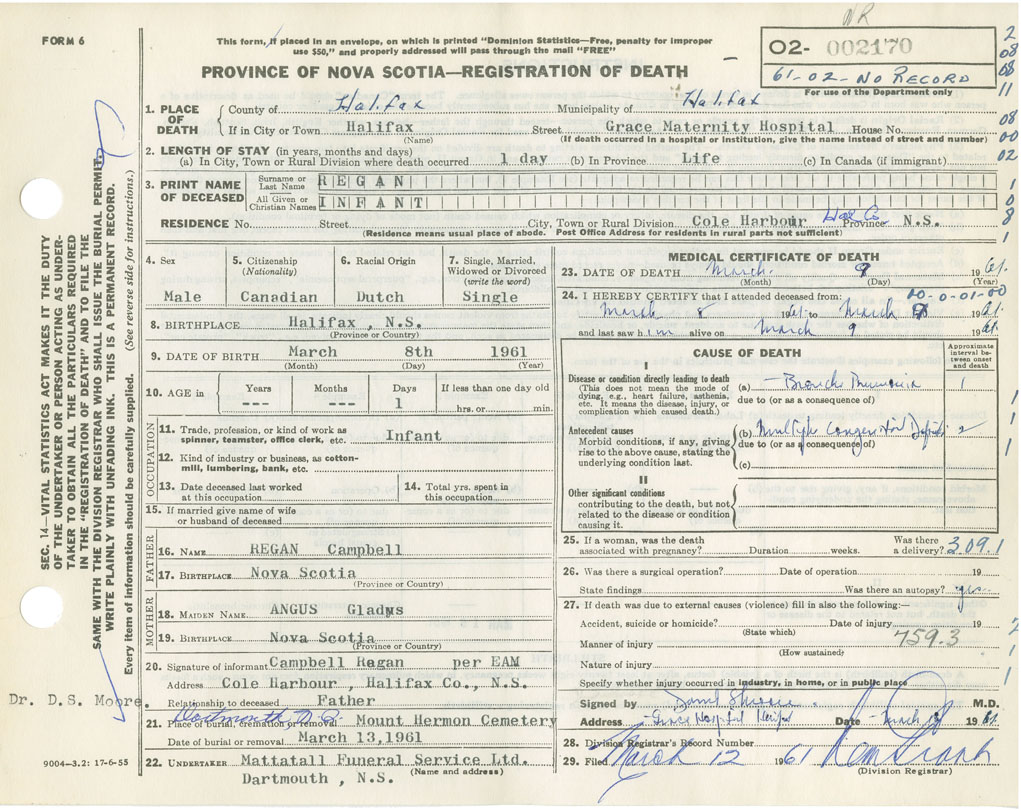 NR
FORM 6
This form, if placed in an envelope, on which is printed "Dominion Statistics—Free, penalty for improper
use $50," and properly addressed will pass through the mail "FREE"
PROVINCE OF NOVA SCOTIA—REGISTRATION OF DEATH
02- 002170
61-02-NO RECORD
For use of the Department only
2
08
08
11
08
00
02
1
0
8
1
1. PLACE OF DEATH
County of Halifax Municipality of Halifax
If in City or Town Halifax Street Grace Maternity Hospital House No.
(Name) (If death occurred in a hospital or institution, give the name instead of street and number)
2. LENGTH OF STAY (in years, months and days)
(a) In City, Town or Rural Division where death occurred 1 day (b) In Province Life (c) In Canada (if immigrant)
3. PRINT NAME OF DECEASED
Surname or Last Name REGAN
All Given or Christian Names INFANT
RESIDENCE No. Street City, Town or Rural Division Cole Harbour Hfx Co. Province N.S.
(Residence means usual place of abode. Post Office Address for residents in rural parts not sufficient)
4. Sex
Male
5. Citizenship
(Nationality)
Canadian
6. Racial Origin
Dutch
7. Single, Married,
Widowed or Divorced
(write the word)
Single
8. BIRTHPLACE Halifax , N.S.
(Province or Country)
9. DATE OF BIRTH March 8th 1961
(Month) (Day) (Year)
10. AGE in
Years ---
Months ---
Days 1
If less than one day old
hrs. or min.
OCCUPATION
11. Trade, profession, or kind of work as
spinner, teamster, office clerk, etc. Infant
12. Kind of industry or business, as cotton-
mill, lumbering, bank, etc.
13. Date deceased last worked
at this occupation
14. Total yrs. spent in
this occupation
15. If married give name of wife
or husband of deceased
FATHER
16. NAME REGAN Campbell
17. BIRTHPLACE Nova Scotia
(Province or Country)
MOTHER
18. MAIDEN NAME ANGUS Gladys
19. BIRTHPLACE Nova Scotia
(Province or Country)
20. Signature of informant Campbell Regan per EAM
Address Cole Harbour , Halifax Co., N.S.
Relationship to deceased Father
Dartmouth N.S.
21. Place of burial, cremation or removal Mount Hermon Cemetery
Date of burial or removal March 13,1961
22. UNDERTAKER Mattatall Funeral Service Ltd.
(Name and address)
Dartmouth , N.S.
MEDICAL CERTIFICATE OF DEATH
23. DATE OF DEATH March 9 1961.
(Month) (Day) (Year)
24. I HEREBY CERTIFY that I attended deceased from: 00-0-01-00
March 8 1961 to March 9 1961.
and last saw him alive on March 9 1961.
CAUSE OF DEATH
Approximate
interval be-
tween onset
and death
I
Disease or condition directly leading to death
(This does not mean the mode of
dying, e.g., heart failure, asthenia,
etc. It means the disease, injury, or
complication which caused death.)
(a) Broncho Pneumonia 1
due to (or as a consequence of)
Antecedent causes
Morbid conditions, if any, giving
rise to the above cause, stating the
underlying condition last.
(b) Multiple Congenital Defects 2
due to (or as a consequence of)
(c)
II
Other significant conditions
contributing to the death, but not
related to the disease or condition
causing it.
1
1
1
25. If a woman, was the death
associated with pregnancy? Duration weeks. Was there
a delivery? 309.1
26. Was there a surgical operation? Date of operation 19
State findings Was there an autopsy? yes
27. If death was due to external causes (violence) fill in also the following:—
Accident, suicide or homicide? Date of injury 19
(State which)
759.3
Manner of injury
(How sustained)
Nature of injury
Specify whether injury occurred in industry, in home, or in public place
2
1
1
Signed by M.D.
Address Grace Hospital Halifax Date March 9 1961.
28. Division Registrar's Record Number
29. Filed March 12 1961
(Division Registrar)
SEC. 14—VITAL STATISTICS ACT MAKES IT THE DUTY
OF THE UNDERTAKER OR PERSON ACTING AS UNDER-
TAKER TO OBTAIN ALL THE PARTICULARS REQUIRED
IN THE "REGISTRATION OF DEATH" AND TO FILE THE
SAME WITH THE DIVISION REGISTRAR WHO SHALL ISSUE THE BURIAL PERMIT.
WRITE PLAINLY WITH UNFADING INK. THIS IS A PERMANENT RECORD.
Every item of information should be carefully supplied. (See reverse side for instructions.)
Dr. D.S. Moore.
9004-3.2: 17-6-55